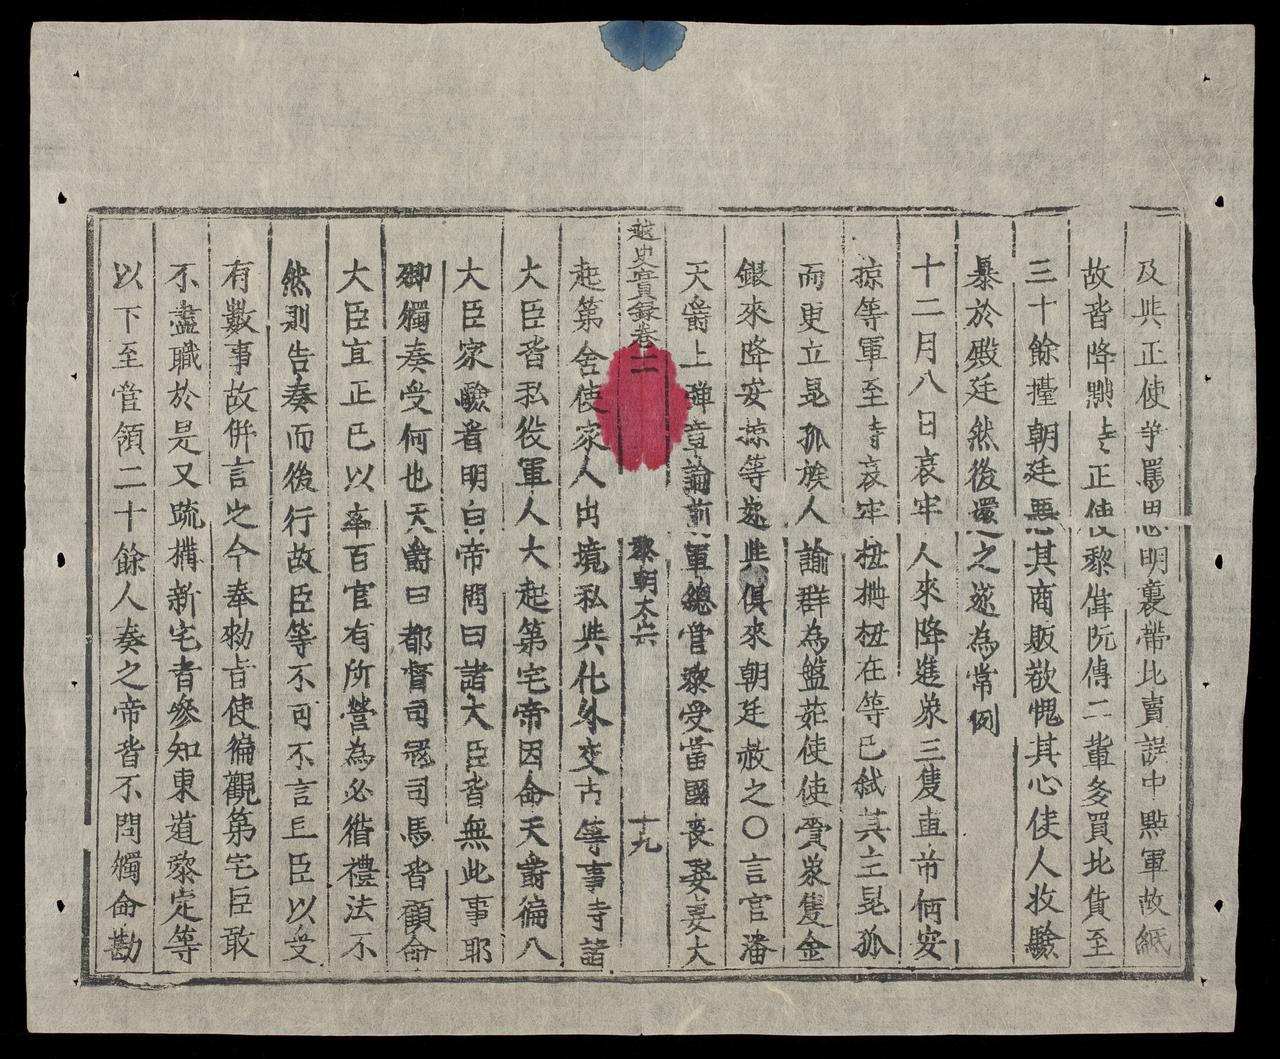 及與正使爭罵思明裏帶比賣誤中點軍故紙
故皆降黜之正使黎偉阮傳二輩多買北貨至
三十餘擡朝廷惡其商販欲愧其心使人收驗
暴於殿廷然後還之遂為常例
十二月八日哀牢人來降進象三隻直市何安
掠等軍至寺哀牢扭柵扭在等已弒其主晃孤
而更立晃孤族人諭群為籃茫使使賫象隻金
銀來降安掠等遂與俱來朝廷赦之〇言官潘
天爵上彈章論前軍總管黎受當國喪娶妾大
越史實錄卷二
黎朝太六
十九
起第舍使家人出境私與化外交古等事寺諸
大臣皆私役軍人大起第宅帝因命天爵徧八
大臣家驗看明白帝問曰諸大臣皆無此事耶
卿獨奏受何也天爵曰都督司冦司馬皆顧命
大臣宜正己以率百官有所營為必循禮法不
然則告奏而後行故臣等不可不言且臣以受
有數事故併言之今奉勑旨使徧觀第宅臣敢
不盡職於是又疏搆新宅者參知東道黎定等
以下至管領二十餘人奏之帝皆不問獨命勘